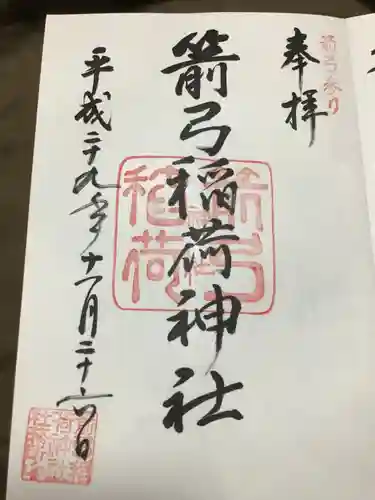 箭弓参り
奉拝
箭弓稲荷神社
箭弓稲荷
平成二十九年十一月二十六日